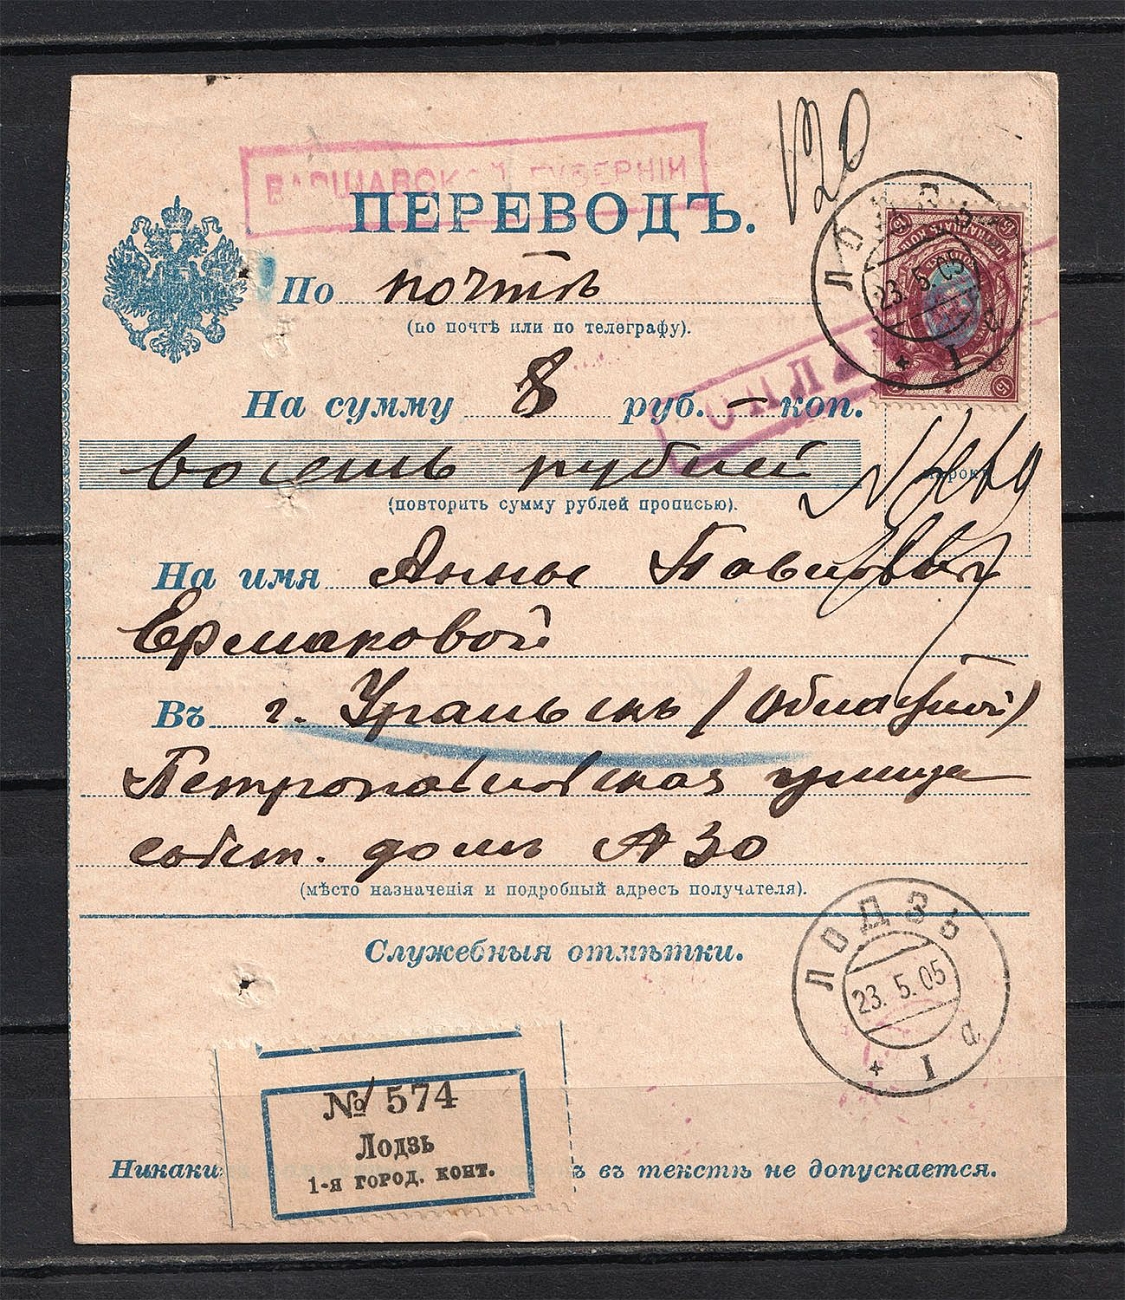 ВАРШАВСКОЙ ГУБЕРНІИ
120
ПЕРЕВОДЪ.
По почтѣ
(по почтѣ или по телеграфу).
На сумму 8 руб. — коп.
восемь рублей
(повторить сумму рублей прописью).
На имя Анны Павловны
Ермаковой
Въ г. Уральскъ (Областной)
Петропавловская улица
собст. домъ № 30
(мѣсто назначенія и подробный адресъ получателя).
ЛОДЗЬ
23.5.05
1 а
15 ПЯТНАДЦАТЬ КОП. 15
15
Служебныя отмѣтки.
ЛОДЗЬ
23.5.05
1 а
№ 574
Лодзь
1-я город. конт.
Никаки въ текстѣ не допускается.